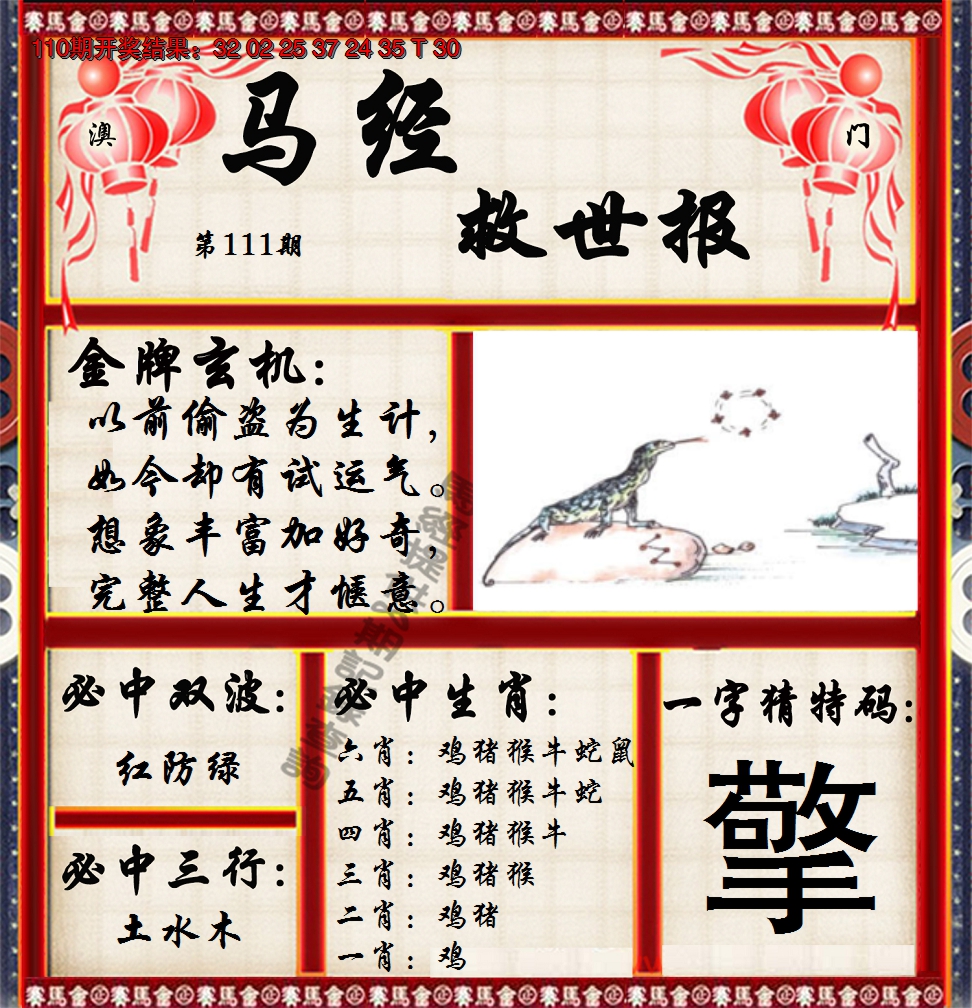 110期开奖结果：32 02 25 37 24 35 T 30
澳
门
马经
救世报
第111期
金牌玄机：
以前偷盗为生计，
如今却有试运气。
想象丰富加好奇，
完整人生才惬意。
必中双波：
红防绿
必中三行：
土水木
必中生肖：
六肖：鸡猪猴牛蛇鼠
五肖：鸡猪猴牛蛇
四肖：鸡猪猴牛
三肖：鸡猪猴
二肖：鸡猪
一肖：鸡
一字猜特码：
擎